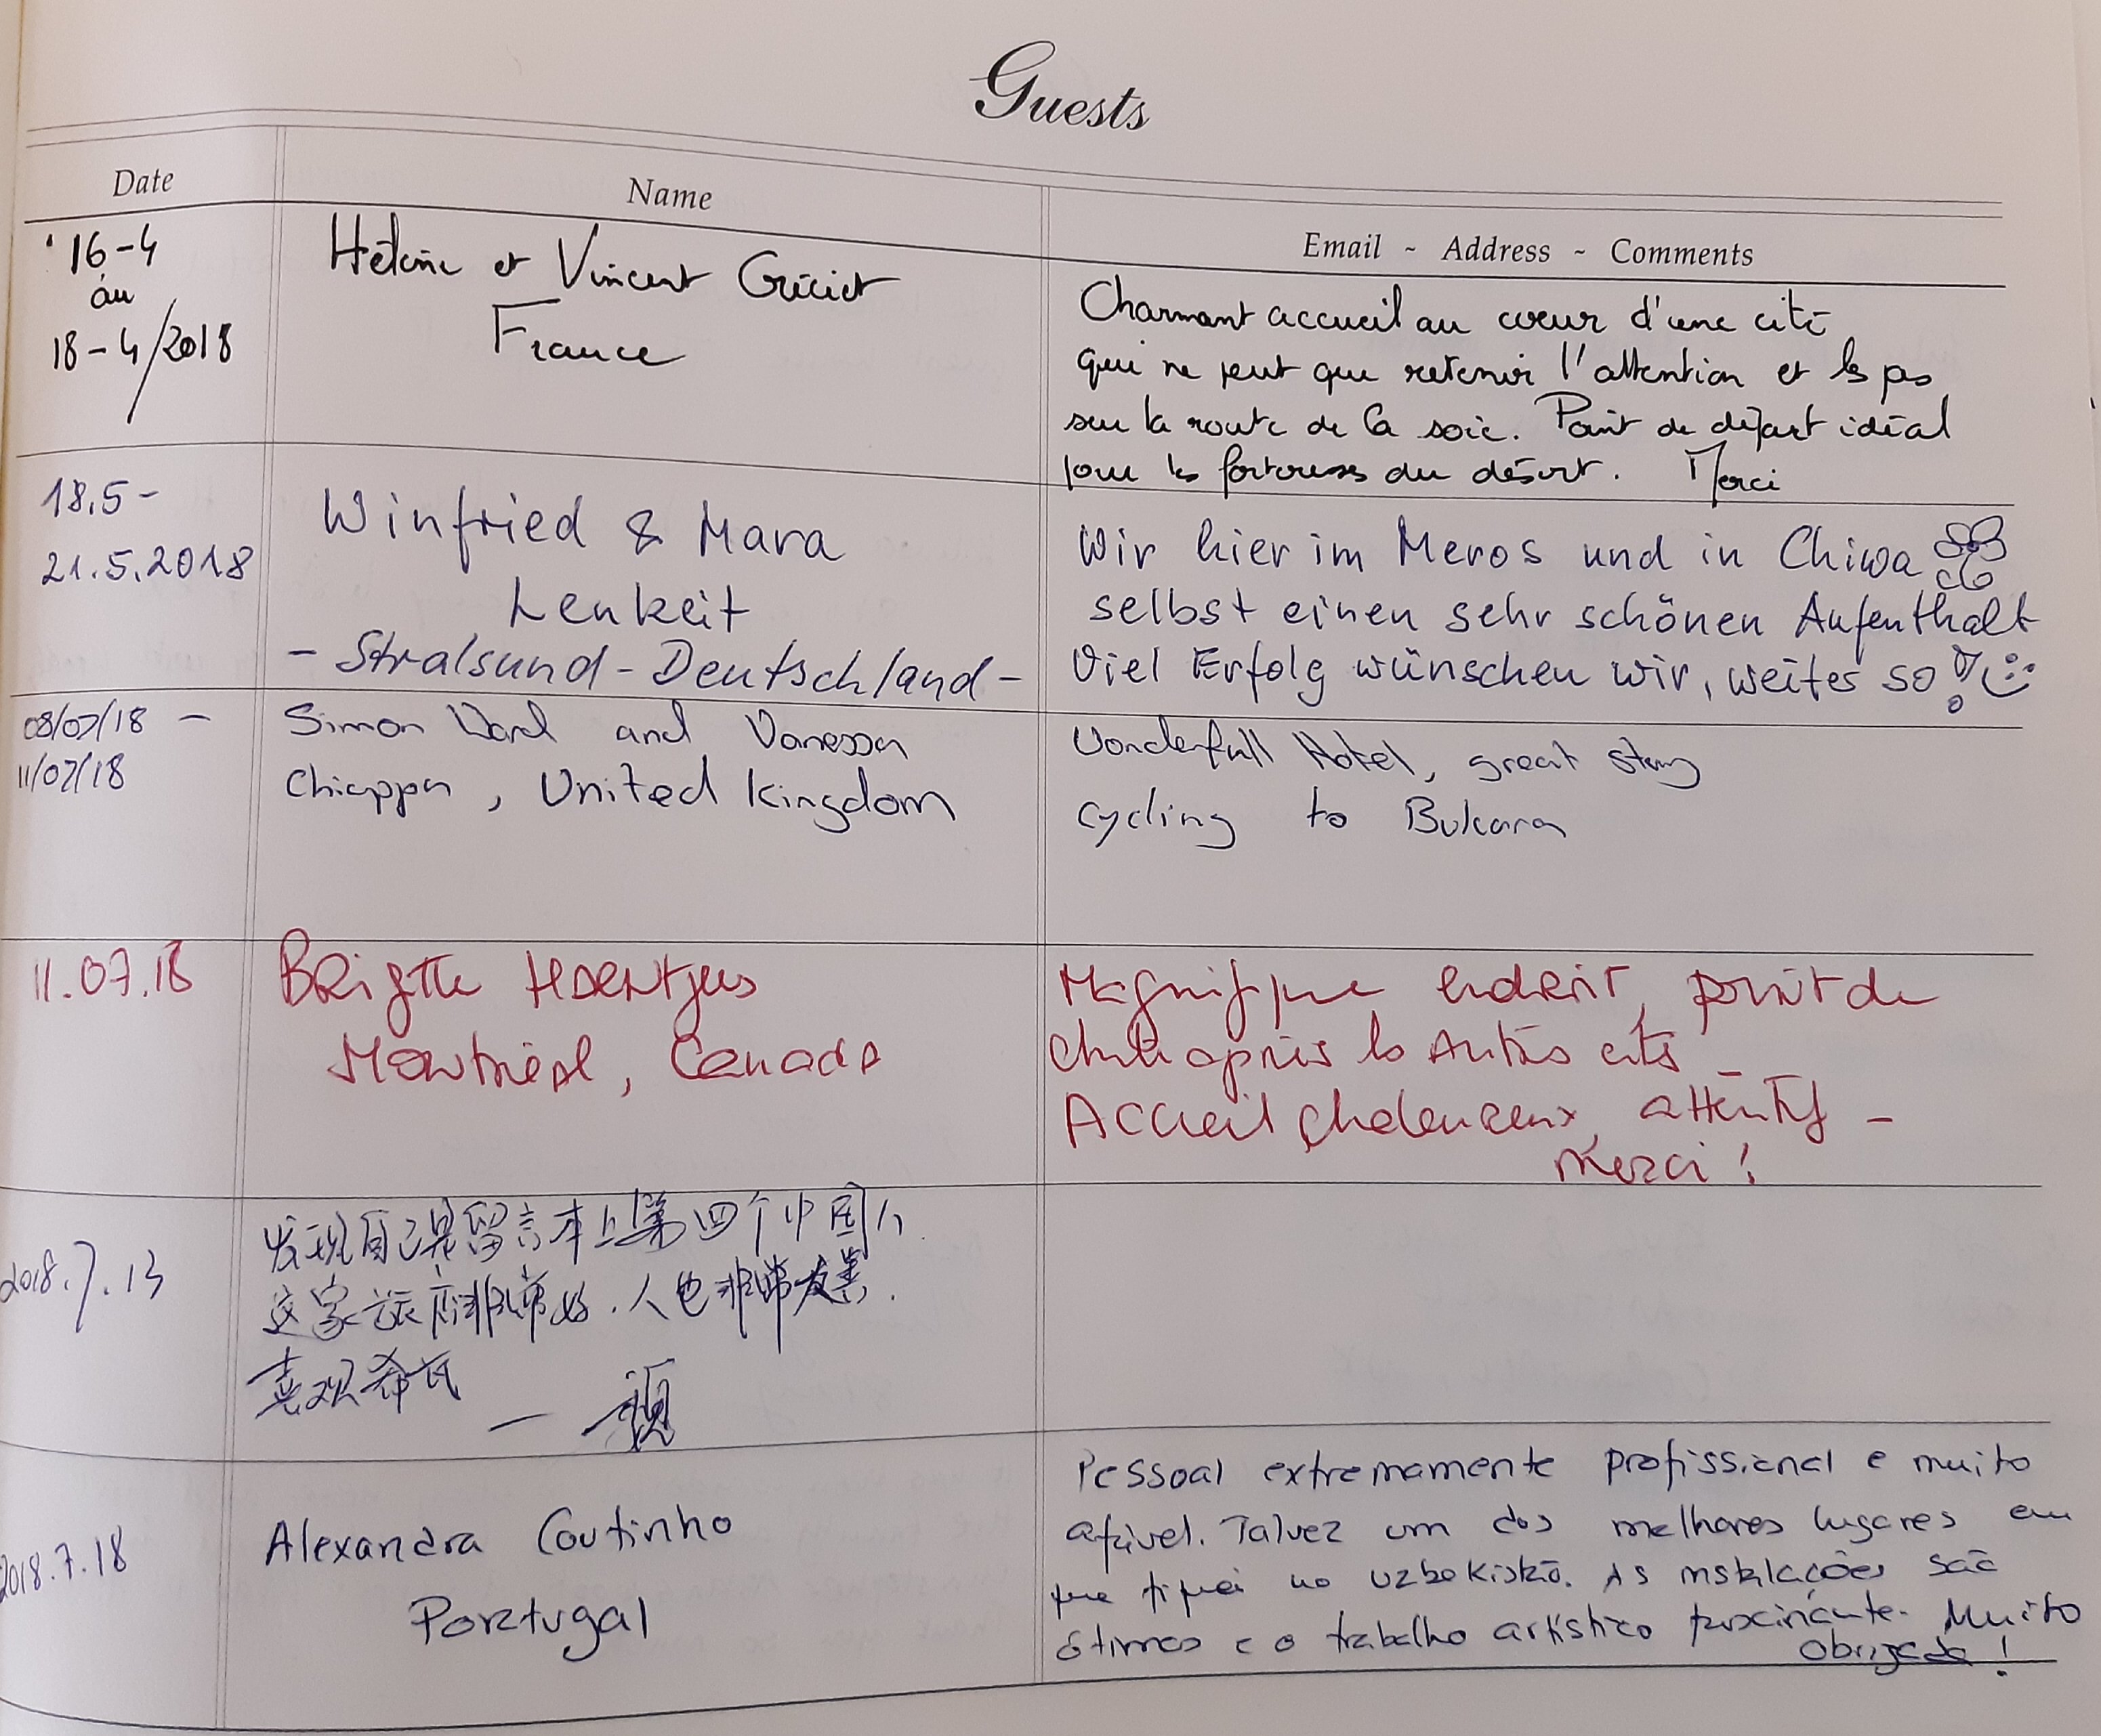 Guests
Date
Name
Email ~ Address ~ Comments
16-4
au
18-4/2018
Hélène et Vincent
France
Charmant accueil au cœur d'une cité
qui ne peut que retenir l'attention et les pas
sur la route de la soie. Point de départ idéal
pour les forteresses du désert. Merci
18.5-
21.5.2018
Winfried & Mara
Lenkeit
- Stralsund - Deutschland -
Wir hier im Meros und in Chiwa
selbst einen sehr schönen Aufenthalt
Viel Erfolg wünschen wir, weiter so!
08/07/18 -
11/07/18
Simon Ward and Vanessa
Chiappa, United Kingdom
Wonderfull Hotel, great stay
cycling to Bukara
11.07.18
Brigitte Haentjens
Montréal, Canada
Magnifique endroit, point de
chute après les autres cités -
Accueil chaleureux, attentif -
Merci !
2018.7.13
发现自己是留言本上第四个中国人.
这家旅店非常好.人也非常友善.
喜欢希瓦
2018.7.18
Alexandra Coutinho
Portugal
Pessoal extremamente profissional e muito
afável. Talvez um dos melhores lugares em
que fiquei no Uzbekistão. As instalações são
ótimas e o trabalho artístico fascinante. Muito
obrigada !